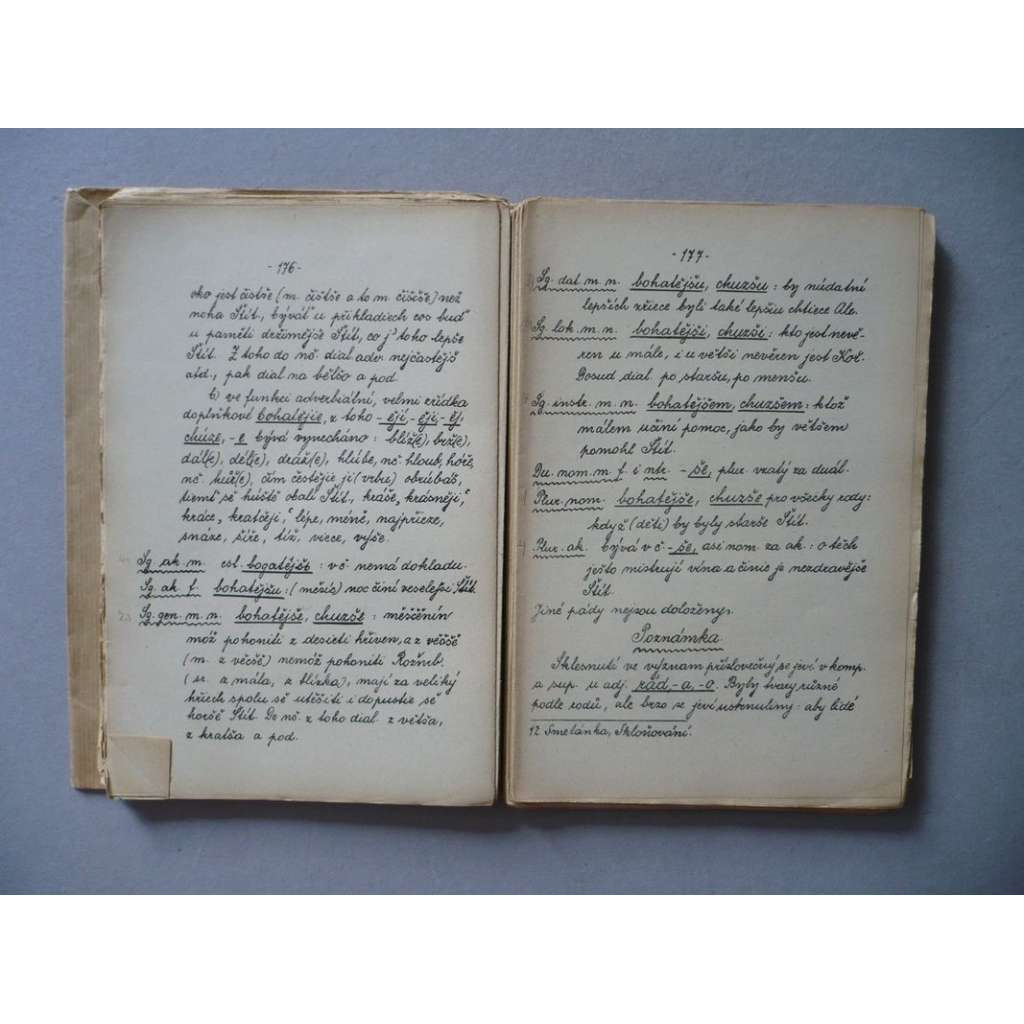 -176-
oko jest čistše (m. čistše a to m. čiščše) než
noha Štít, bývať u příkladiech cos buď
u paměti držimějše Štít, co jᵗ toho lepše
Štít. Z toho do nč. dial adv. nejčastějš
atd., pak dial na bělšo a pod.
b) ve funkci adverbiální, velmi zřídka
doplňkové bohatějie, z toho -ějí, -ěji, -ěj,
chúze, -e bývá vynecháno: blíž(e), brž(e),
dál(e), dél(e), dráž(e), hlúbe, nč. hloub, hóře,
nč. hůř(e), čím čestějie ji (vrbu) obrúbáš,
tiemť sě hustě obalí Štít, kráše, „krásnějí“,
kráce, „kratčěji“, lépe, méně, najpříeze,
snáze, šíře, tíž, viece, výše.
Sg. ak. m. csl. bogatějšь: v č nemá dokladu.
Sg. ak. f. bohatějšu: (měsíc) noc činí veselejši Štít.
Sg. gen. m. n. bohatějše, chuzše: měščěnín
móž pohoniti z desieti hřiven, a z věčšě
(m. z věcšě) nemóž pohoniti Rožmb.
(sr. z mála, z blízka), mají za veliký
hřiech spolu sě utěšiti i dopustie sě
horšě Štít. Do nč. z toho dial. z větša,
z kratša a pod.
-177-
Sg. dat. m. n. bohatějšu, chuzšu: by núdatní
lepších zřiece byli také lepšu chtiece Ale.
Sg. lok. m. n. bohatějši, chuzši: kto jest nevě-
ren u mále, i u větši nevěren jest Koř.
Dosud dial. po staršu, po menšu.
Sg. instr. m. n. bohatějšem, chuzšem: ktož
málem učiní pomoc, jako by většem
pomohl Štít.
Du. nom. m. f. i ntr. -še, plur. vzatý za duál.
Plur. nom. bohatějše, chuzše pro všecky rody:
když (děti) by byly starše Štít.
Plur. ak. bývá v č -še, asi nom. za ak.: o těch
ješto mistrují vína a činie je nezdravějše
Štít.
Jiné pády nejsou doloženy.
Poznámka.
Sklesnutí ve význam příslovečný se jeví v komp.
a sup. u adj. rád -a, -o. Byly tvary různé
podle rodů, ale brzo se jeví ustrnuliny: aby lidé
12 Smetánka, Skloňování.